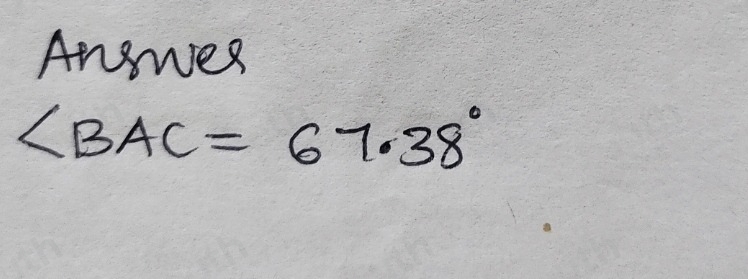 Answer
<BAC = 67.38°